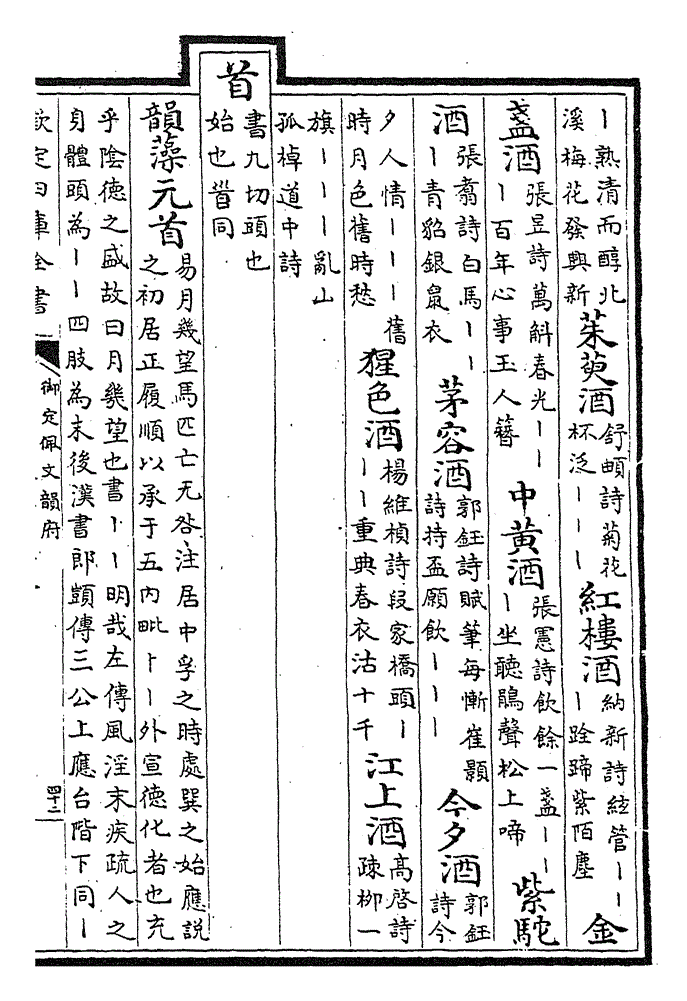 丨熟清而醇北溪梅花發興新茱萸酒舒頔詩菊花杯泛丨丨丨紅樓酒納新詩絃管丨丨丨跧蹄紫陌塵金
盞酒張昱詩萬斛春光丨丨丨百年心事玉人簪中黄酒張憲詩飲餘一盞丨丨丨坐聽鵑聲松上啼紫駝
酒張翥詩白馬丨丨丨青貂銀鼠衣茅容酒郭鈺詩賦筆每慚崔顥詩持盃願飲丨丨丨今夕酒郭鈺詩今
夕人情丨丨丨舊時月色舊時愁猩色酒楊維楨詩段家橋頭丨丨丨重典春衣沽十千江上酒高啓詩疎柳一
旗丨丨丨亂山孤棹道中詩
首書九切頭也始也𩠐同
韻藻元首易月幾望馬匹亡无咎注居中孚之時處巽之始應説之初居正履順以承于五内毗卜丨丨外宣德化者也充
乎陰德之盛故曰月幾望也書丨丨明哉左傳風淫末疾疏人之身體頭為丨丨四肢為末後漢書郎顗傳三公上應台階下同丨
欽定四庫全書
御定佩文韻府
四十二